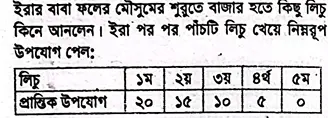 ইরার বাবা ফলের মৌসুমের শুরুতে বাজার হতে কিছু লিচু
কিনে আনলেন। ইরা পর পর পাঁচটি লিচু খেয়ে নিম্নরূপ
উপযোগ পেল:
লিচু ১ম ২য় ৩য় ৪র্থ ৫ম
প্রান্তিক উপযোগ ২০ ১৫ ১০ ৫ ০